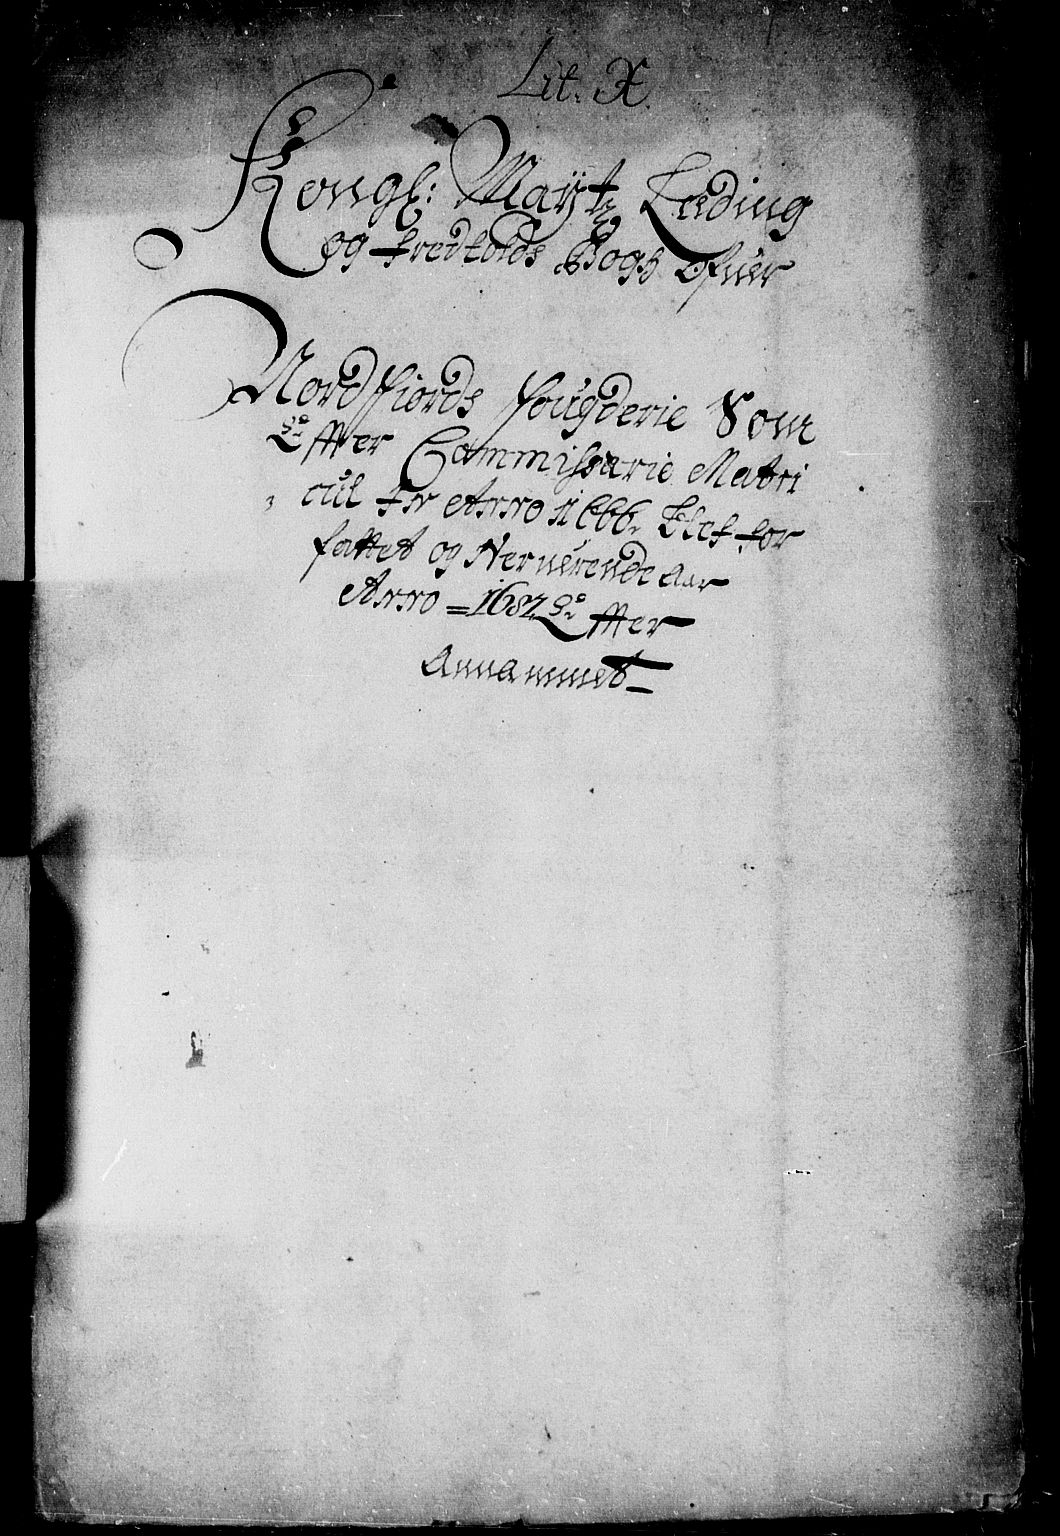 Lit. X.
Kongl: Maytz Leding
og fredtolds Bogh ofuer
Nordfiords fougderie Som
Effter Commissarie Matri
cul for Anno 1666 blef for
fattet og Neruerende aar
Anno = 1682 Er effter
Annammet